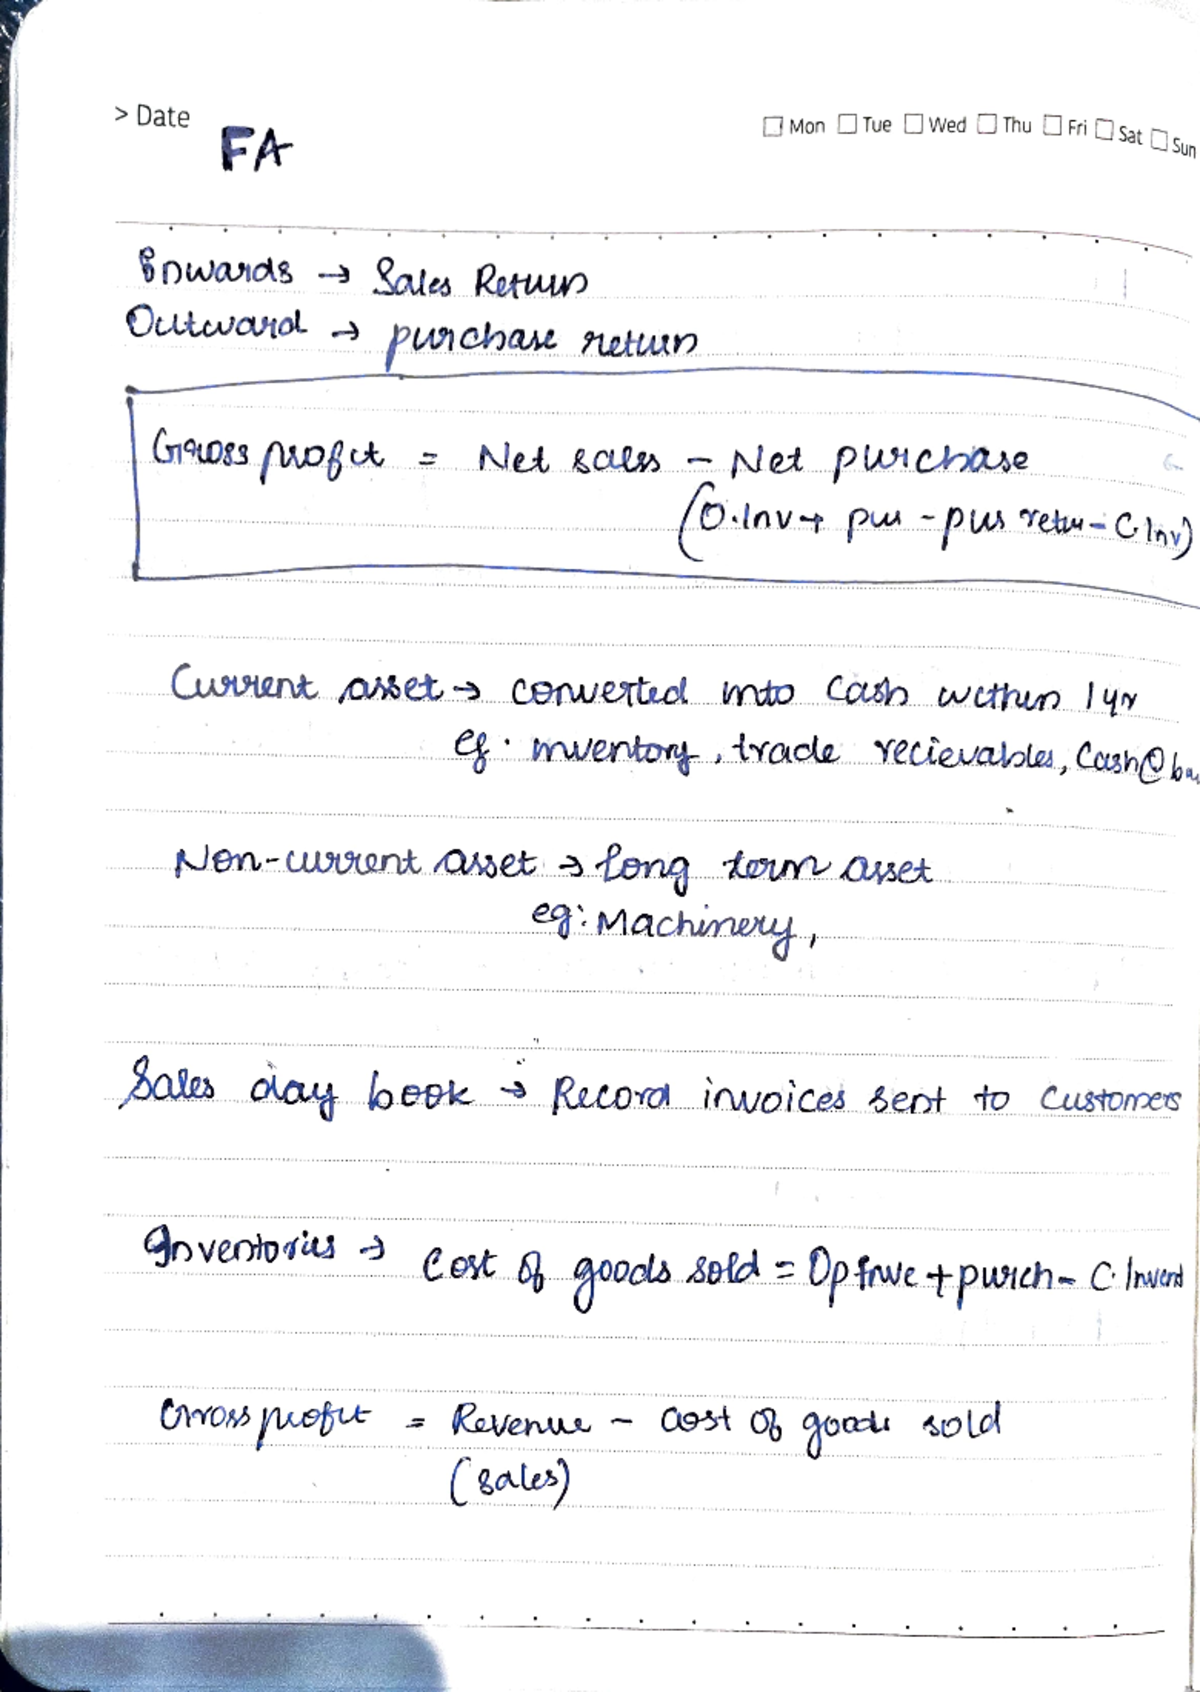 > Date
FA
Mon Tue Wed Thu Fri Sat Sun
Inwards → Sales Return
Outward → purchase return
Gross profit = Net sales - Net purchase
(O.Inv + pur - pur retur - C.Inv)
Current asset → converted into Cash within 1 yr
eg. inventory, trade recievables, Cash@ba
Non-current asset → long term asset
eg: Machinery,
Sales day book → Record invoices sent to Customers
Inventories → Cost of goods sold = Op Inve + purch - C. Invent
Gross profit = Revenue - cost of goods sold
(sales)